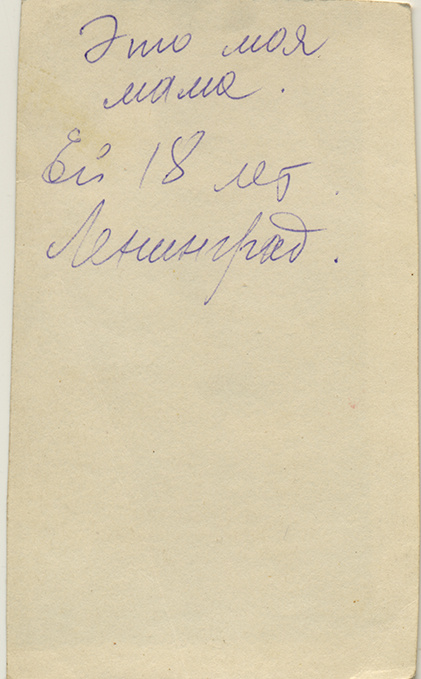 Это моя
мама.
Ей 18 лет.
Ленинград.